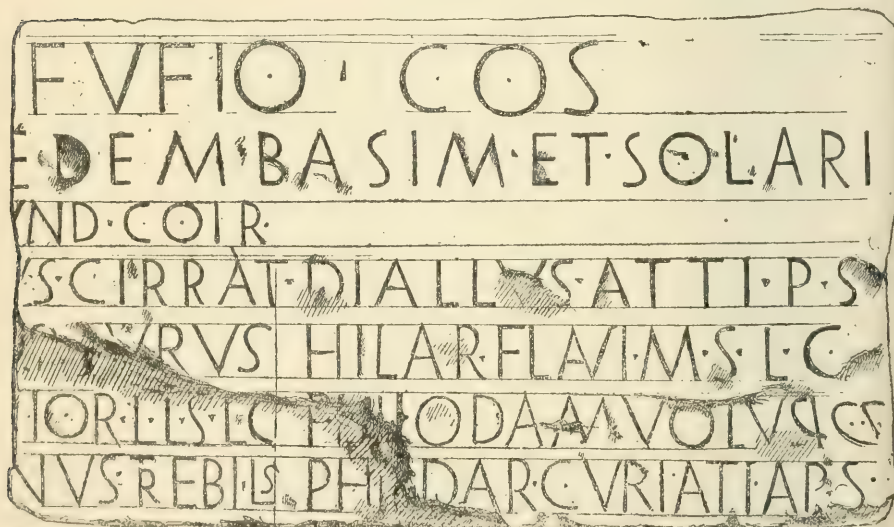 FVFIO · COS
EDEM · BASIM · ET · SOLARI
VND · COIR ·
VS · CIRRAT · DIALLVS · ATTI · P · S
VRVS HILAR · FLAVI · M · S · L · C ·
IOR · L · L · S · L · C VOLVSI · C S
NVS · TREBI · L S CVRIATI · AP · S ·